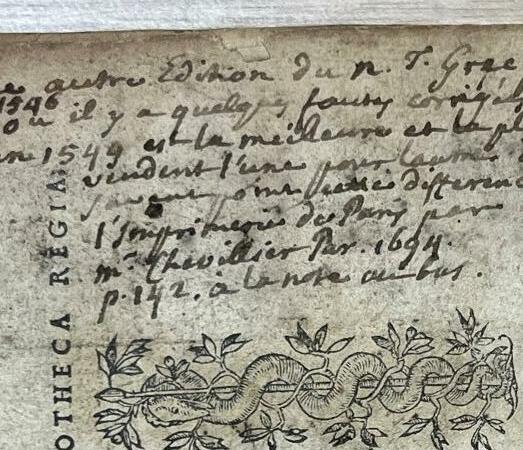 autre Edition du N. T. Grec
1546
ou il y a quelques fautes corrigées
1549 est la meilleure et la pl
vendent l'une pour l'autre
cette differen
l'Imprimerie de Paris par
mr. Chevillier Par. 1694.
p. 142. à la note au bas.
OTHECA REGIA